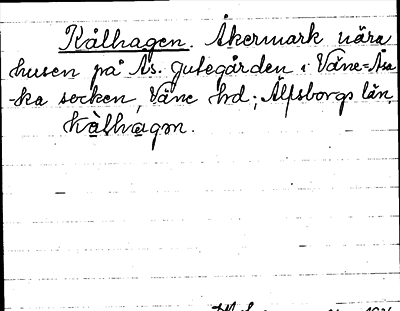 Kålhagen. Åkermark nära
husen på Ås. Jutegården i Väne=Åsa
-ka socken, Väne hd; Älfsborgs län.
Kàlhagən.